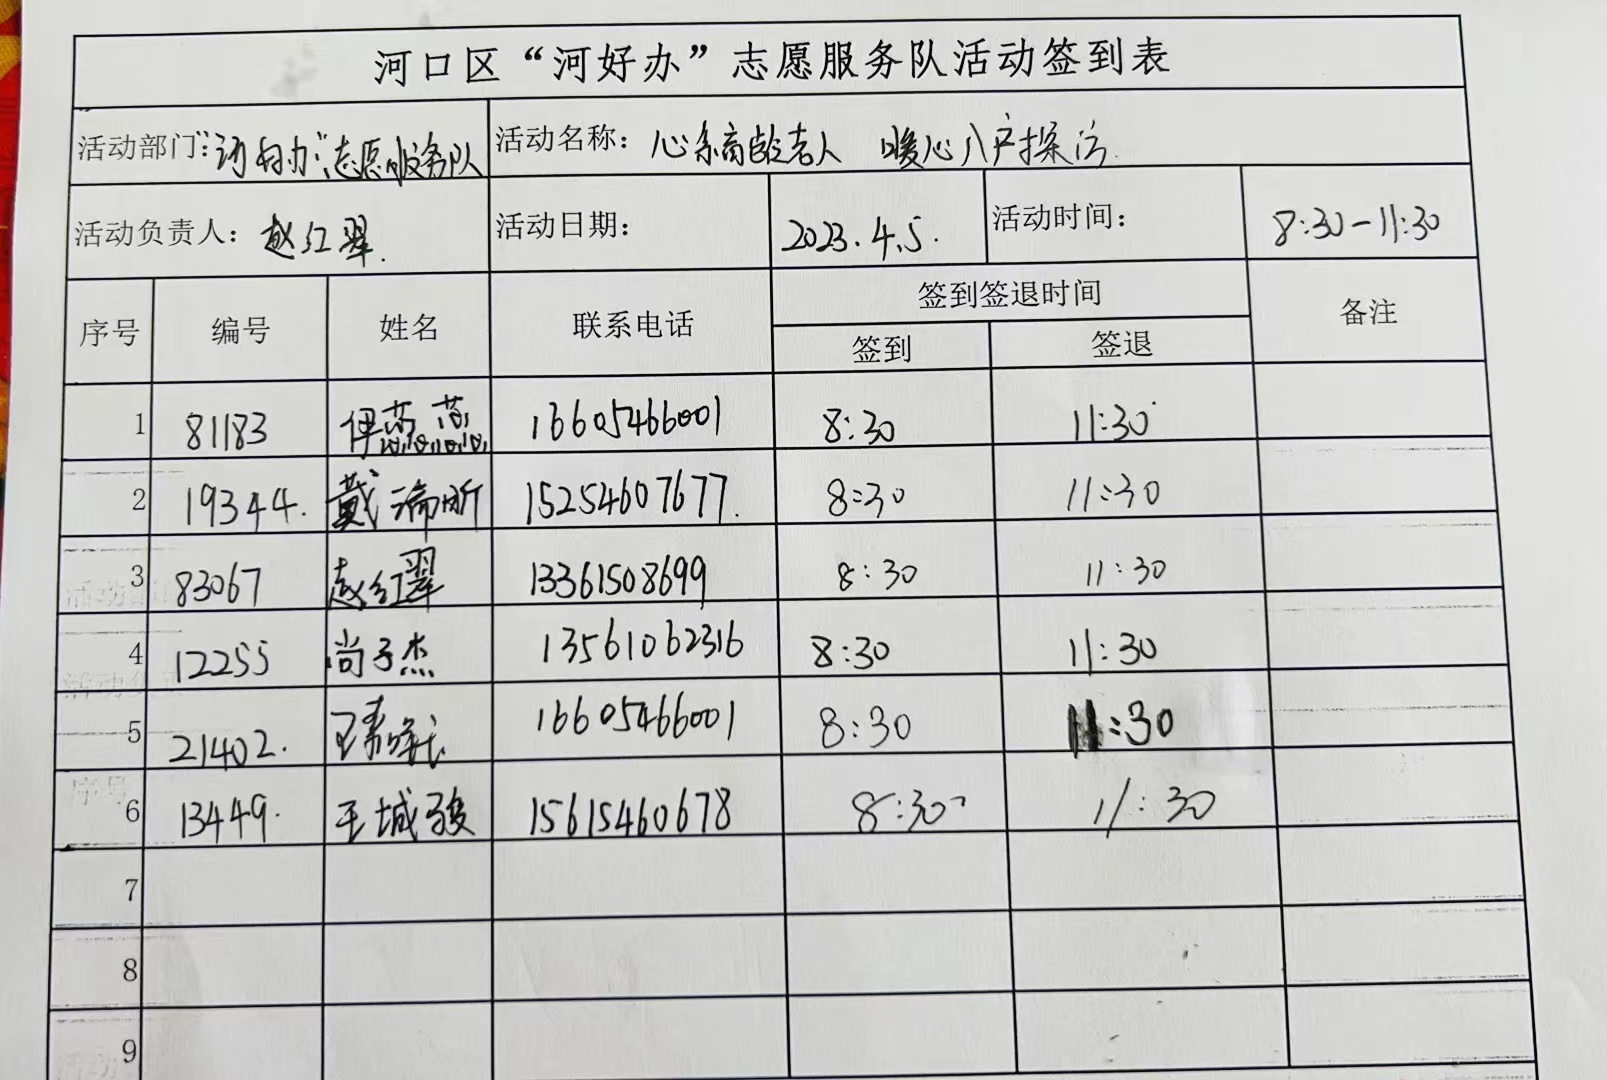 河口区“河好办”志愿服务队活动签到表
活动部门：“河好办”志愿服务队 活动名称：心系高龄老人 暖心入户探访
活动负责人：赵红翠. 活动日期： 2023.4.5. 活动时间： 8:30-11:30
序号 编号 姓名 联系电话 签到签退时间 备注
签到 签退
1 81183 16605466001 8:30 11:30
2 19344. 戴瑞昕 15254607677. 8:30 11:30
3 83067 赵红翠 13361508699 8:30 11:30
4 12255 尚子杰 13561062316 8:30 11:30
5 21402. 16605466001 8:30 11:30
6 13449. 王城骏 15615460678 8:30 11:30
7
8
9